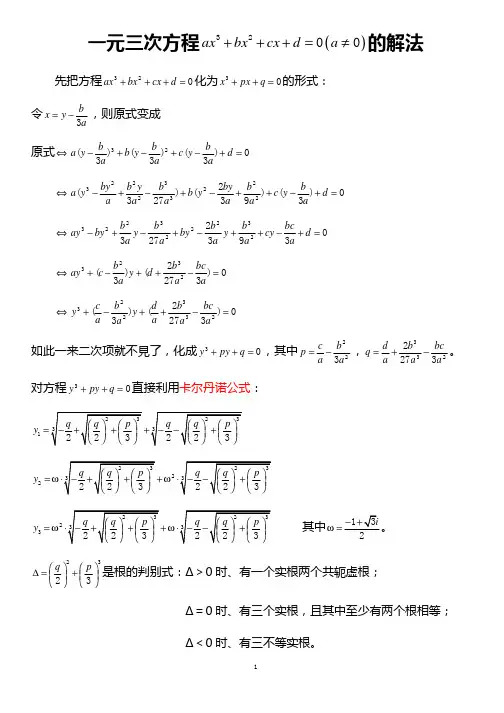 一元三次方程ax³+bx²+cx+d=0(a≠0)的解法
先把方程ax³+bx²+cx+d=0化为x³+px+q=0的形式：
令x=y−b/3a，则原式变成
原式⇔a(y−b/3a)³+b(y−b/3a)²+c(y−b/3a)+d=0
⇔a(y³−by²/a+b²y/3a²−b³/27a³)+b(y²−2by/3a+b²/9a²)+c(y−b/3a)+d=0
⇔ay³−by²+b²/3a y−b³/27a²+by²−2b²/3a y+b³/9a²+cy−bc/3a+d=0
⇔ay³+(c−b²/3a)y+(d+2b³/27a²−bc/3a)=0
⇔y³+(c/a−b²/3a²)y+(d/a+2b³/27a³−bc/3a²)=0
如此一来二次项就不見了，化成y³+py+q=0，其中p=c/a−b²/3a²，q=d/a+2b³/27a³−bc/3a²。
对方程y³+py+q=0直接利用卡尔丹诺公式：
y₁=∛(−q/2+√((q/2)²+(p/3)³))+∛(−q/2−√((q/2)²+(p/3)³))
y₂=ω·∛(−q/2+√((q/2)²+(p/3)³))+ω²·∛(−q/2−√((q/2)²+(p/3)³))
y₃=ω²·∛(−q/2+√((q/2)²+(p/3)³))+ω·∛(−q/2−√((q/2)²+(p/3)³)) 其中ω=(−1+√3i)/2。
Δ=(q/2)²+(p/3)³是根的判别式：Δ＞0时、有一个实根两个共轭虚根；
Δ＝0时、有三个实根，且其中至少有两个根相等；
Δ＜0时、有三不等实根。
1